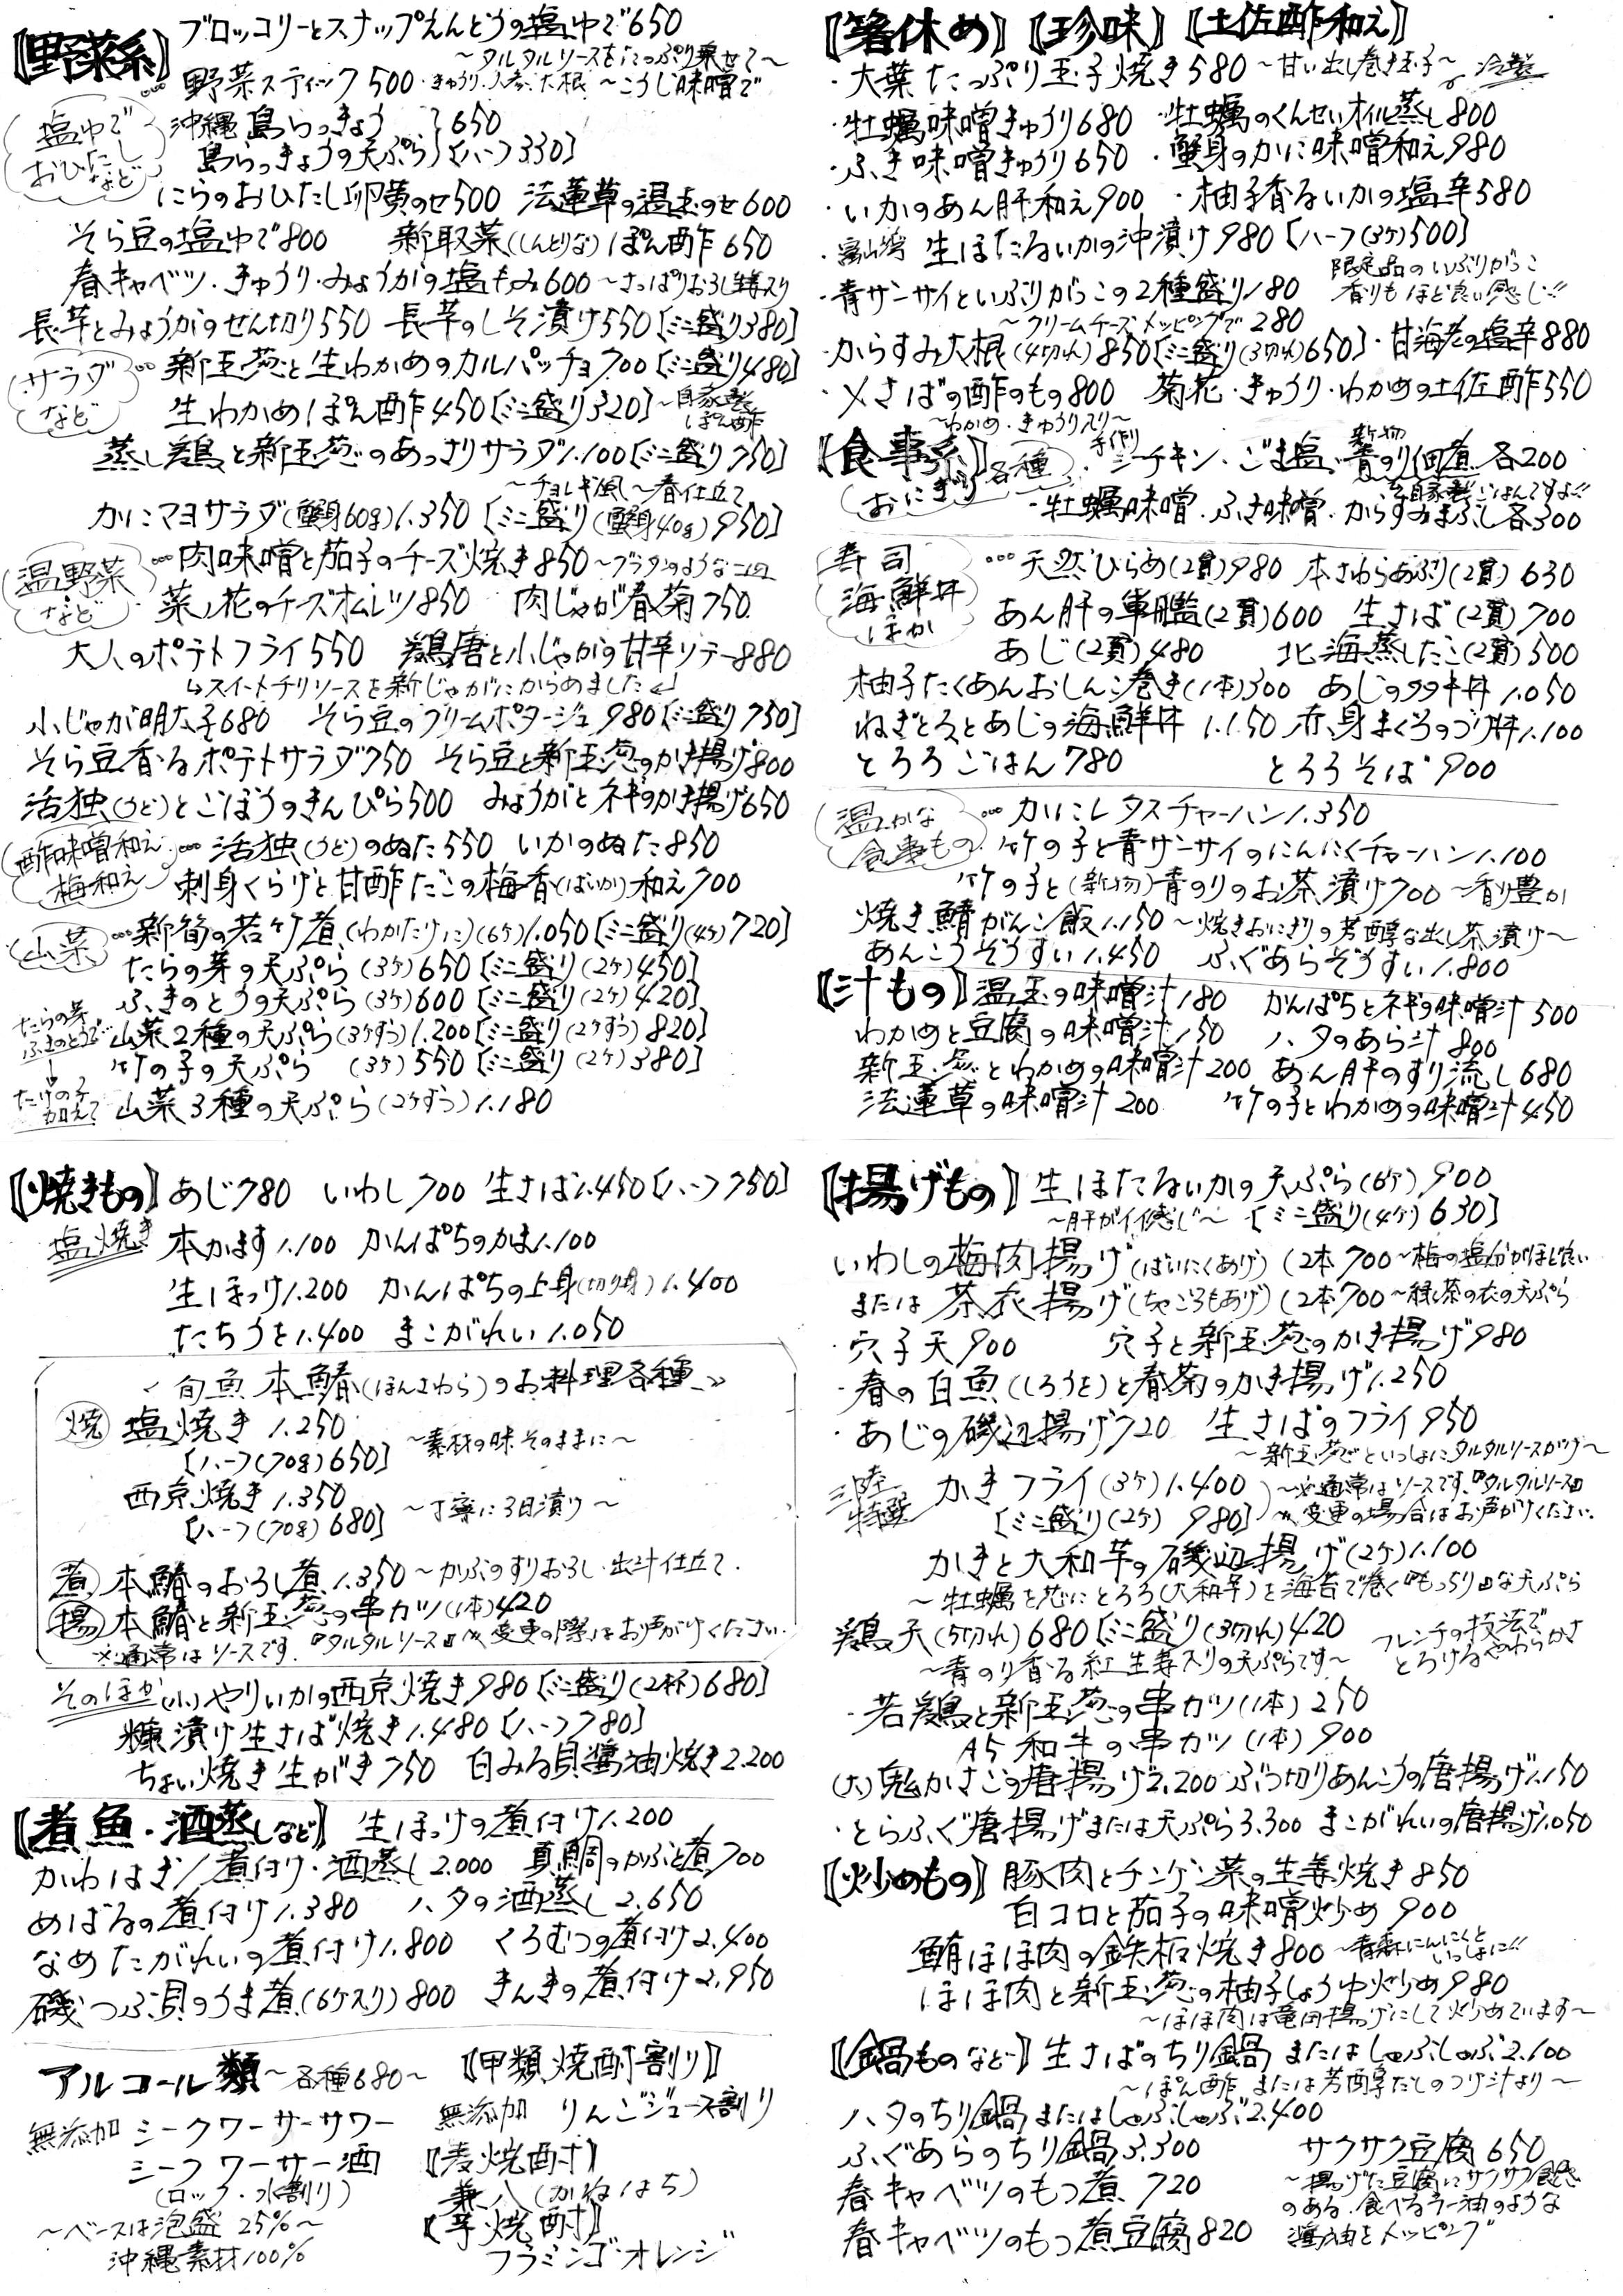 【野菜系】 ブロッコリーとスナップえんどうの塩ゆで650
～タルタルソースをたっぷり乗せて～
…野菜スティック500・きゅうり・人参・大根 ～こうじ味噌で
塩ゆで おひたし など
沖縄 島らっきょう 650
島らっきょうの天ぷら [ハーフ330]
にらのおひたし卵黄のせ500 法蓮草の温玉のせ600
そら豆の塩ゆで800 新取菜(しんとりな)ぽん酢650
春キャベツ・きゅうり・みょうがの塩もみ600～さっぱりおろし生姜入り
長芋とみょうがのせん切り550 長芋のしそ漬け550[ミニ盛り380]
サラダなど …新玉葱と生わかめのカルパッチョ700[ミニ盛り480]
生わかめぽん酢450[ミニ盛り320]～自家製ぽん酢
蒸し鶏と新玉葱のあっさりサラダ1.100[ミニ盛り750]
～チョレギ風～春仕立て
かにマヨサラダ(蟹身60g)1.350[ミニ盛り(蟹身40g)950]
温野菜など …肉味噌と茄子のチーズ焼き850～グラタンのような一皿
菜ノ花のチーズオムレツ850 肉じゃが春菊750
大人のポテトフライ550 鶏唐と小じゃがの甘辛ソテー880
↳スイートチリソースを新じゃがにからめました↲
小じゃが明太子680 そら豆のクリームポタージュ980[ミニ盛り750]
そら豆香るポテトサラダ750 そら豆と新玉葱のかき揚げ800
活独(うど)とごぼうのきんぴら500 みょうがとネギのかき揚げ650
酢味噌和え 梅和え …活独(うど)のぬた550 いかのぬた850
刺身くらげと甘酢だこの梅香(ばいか)和え700
山菜 …新筍の若竹煮(わかたけに)(6ケ)1.050[ミニ盛り(4ケ)720]
たらの芽の天ぷら(3ケ)650[ミニ盛り(2ケ)450]
ふきのとうの天ぷら(3ケ)600[ミニ盛り(2ケ)420]
たらの芽 ふきのとうで… 山菜2種の天ぷら(3ケずつ)1.200[ミニ盛り(2ケずつ)820]
竹の子の天ぷら (3ケ)550[ミニ盛り(2ケ)380]
たけの子加えて 山菜3種の天ぷら(2ケずつ)1.180
【箸休め】【珍味】【土佐酢和え】
・大葉たっぷり玉子焼き580～甘い出し巻き玉子～冷製
・牡蠣味噌きゅうり680 ・牡蠣のくんせいオイル蒸し800
・ふき味噌きゅうり650 ・蟹身のかに味噌和え980
・いかのあん肝和え900 ・柚子香るいかの塩辛580
・富山湾 生ほたるいかの沖漬け980[ハーフ(3ケ)500]
・青サンサイといぶりがっこの2種盛り180 限定品のいぶりがっこ 香りもほど良い感じ!!
～クリームチーズトッピングで280
・からすみ大根(4切れ)850[ミニ盛り(3切れ)650]・甘海老の塩辛880
・〆さばの酢のもの800 菊花・きゅうり・わかめの土佐酢550
～わかめ・きゅうり入り～
【食事系】 おにぎり各種・手作りシーチキン・ごま塩・新物青のり佃煮 各200
自家製ごはんですよ!!
・牡蠣味噌・ふき味噌・からすみまぶし各300
寿司 海鮮丼 ほか
…天然ひらめ(2貫)980 本さわらあぶり(2貫)630
あん肝の軍艦(2貫)600 生さば(2貫)700
あじ(2貫)480 北海蒸したこ(2貫)500
柚子たくあんおしんこ巻き(1本)300 あじのタタキ丼1.050
ねぎとろとあじの海鮮丼1.150 赤身まぐろのづけ丼1.100
とろろごはん780 とろろそば900
温かな食事もの …かにレタスチャーハン1.350
竹の子と青サンサイのにんにくチャーハン1.100
竹の子と(新物)青のりのお茶漬け700～香り豊か
焼き鯖がんこ飯1.150～焼きおにぎりの芳醇な出し茶漬け～
あんこうぞうすい1.450 ふぐあらぞうすい1.800
【汁もの】温玉の味噌汁180 かんぱちとネギの味噌汁500
わかめと豆腐の味噌汁150 ハタのあら汁800
新玉葱とわかめの味噌汁200 あん肝のすり流し680
法蓮草の味噌汁200 竹の子とわかめの味噌汁450
【焼きもの】あじ780 いわし700 生さば1.450[ハーフ750]
塩焼き 本かます1.100 かんぱちのかま1.100
生ほっけ1.200 かんぱちの上身(切り身)1.400
たちうを1.400 まこがれい1.050
〈旬魚 本鰆(ほんさわら)のお料理各種〉
焼 塩焼き1.250
[ハーフ(70g)650] ～素材の味そのままに～
西京焼き1.350
[ハーフ(70g)680] ～丁寧に3日漬け～
煮 本鰆のおろし煮1.350～かぶのすりおろし・出汁仕立て
揚 本鰆と新玉葱の串カツ(1本)420
※通常はソースです。『タルタルソース』へ変更の際はお声がけください。
そのほか (小)やりいかの西京焼き980[ミニ盛り(2杯)680]
糠漬け生さば焼き1.480[ハーフ780]
ちょい焼き生がき750 白みる貝醤油焼き2.200
【煮魚・酒蒸しなど】生ほっけの煮付け1.200
かわはぎ/煮付け・酒蒸し2.000 真鯛のかぶと煮700
めばるの煮付け1.380 ハタの酒蒸し2.650
なめたがれいの煮付け1.800 くろむつの煮付け2.400
磯つぶ貝のうま煮(6ケ入り)800 きんきの煮付け2.950
アルコール類～各種680～
無添加 シークワーサーサワー
シークワーサー酒
(ロック・水割り)
～ベースは泡盛25%～
沖縄素材100%
【甲類焼酎割り】
無添加 りんごジュース割り
【麦焼酎】
兼八(かねはち)
【芋焼酎】
フラミンゴオレンジ
【揚げもの】生ほたるいかの天ぷら(6ケ)900
～肝がイイ感じ～ [ミニ盛り(4ケ)630]
いわしの梅肉揚げ(ばいにくあげ)(2本700～梅の塩分がほど良い
または 茶衣揚げ(ちゃごろもあげ)(2本700～緑茶の衣の天ぷら
・穴子天900 穴子と新玉葱のかき揚げ980
・春の白魚(しろうを)と春菊のかき揚げ1.250
・あじの磯辺揚げ720 生さばのフライ950
～新玉葱といっしょにタルタルソースがけ～
三陸特選 かきフライ(3ケ)1.400 ～※通常はソースです。『タルタルソース』
[ミニ盛り(2ケ)980] へ変更の場合はお声がけください。
かきと大和芋の磯辺揚げ(2ケ)1.100
～牡蠣を芯にとろろ(大和芋)を海苔で巻く『もっちり』な天ぷら
鶏天(5切れ)680[ミニ盛り(3切れ)420 フレンチの技法でとろけるやわらかさ
～青のり香る紅生姜入りの天ぷらです～
・若鶏と新玉葱の串カツ(1本)250
A5和牛の串カツ(1本)900
(大)鬼かさごの唐揚げ2.200 ぶつ切りあんこうの唐揚げ1.150
・とらふぐ唐揚げまたは天ぷら3.300 まこがれいの唐揚げ1.050
【炒めもの】豚肉とチンゲン菜の生姜焼き850
白コロと茄子の味噌炒め900
鮪ほほ肉の鉄板焼き800～青森にんにくといっしょに!!
ほほ肉と新玉葱の柚子しょうゆ炒め980
～ほほ肉は竜田揚げにして炒めています～
【鍋ものなど】生さばのちり鍋 または しゃぶしゃぶ2.100
～ぽん酢 または 芳醇だしのつけ汁より～
ハタのちり鍋またはしゃぶしゃぶ2.400
ふぐあらのちり鍋3.300 サクサク豆腐650
春キャベツのもつ煮720
春キャベツのもつ煮豆腐820
～揚げた豆腐にサクサク食感
のある、食べるラー油のような
醤油をトッピング